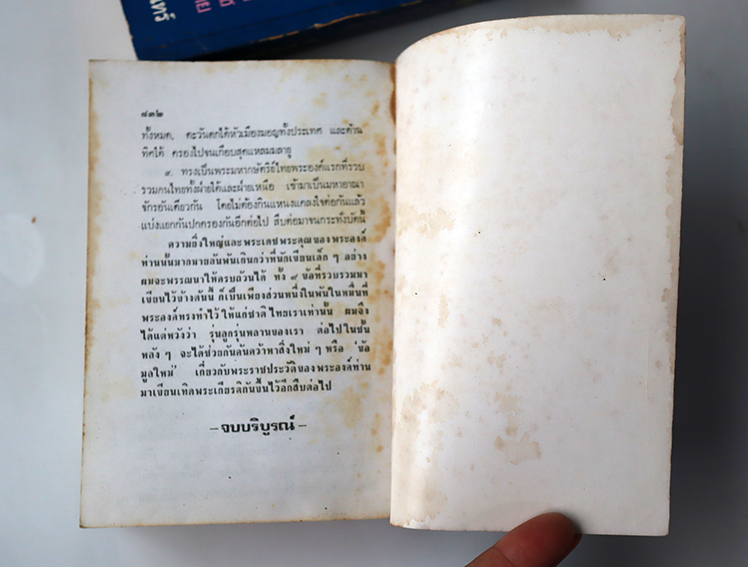 ๘๓๒
ทั้งหมด, ตะวันตกได้หัวเมืองมอญทั้งประเทศ และด้าน
ทิศใต้ ตรองไปจนเกือบสุดแหลมมลายู
๙. ทรงเป็นพระมหากษัตริย์ไทยพระองค์แรกที่รวบ
รวมคนไทยทั้งฝ่ายใต้และฝ่ายเหนือ เข้ามาเป็นมหาอาณา
จักรอันเดียวกัน โดยไม่ต้องกินแหนงแคลงใจต่อกันแล้ว
แบ่งแยกกันปกครองกันอีกต่อไป สืบต่อมาจนกระทั่งบัดนี้
ความยิ่งใหญ่และพระเดชพระคุณของพระองค์
ท่านนั้นมากมายอันพันเกินกว่าที่นักเขียนเล็ก ๆ อย่าง
ผมจะพรรณนาให้ครบถ้วนได้ ทั้ง ๙ ข้อที่รวบรวมมา
เขียนไว้ข้างต้นนี้ ก็เป็นเพียงส่วนหนึ่งในพันในหมื่นที่
พระองค์ทรงทำไว้ให้แก่ชาติไทยเราเท่านั้น ผมจึง
ได้แต่หวังว่า รุ่นลูกรุ่นหลานของเรา ต่อไปในชั้น
หลัง ๆ จะได้ช่วยกันค้นคว้าหาสิ่งใหม่ ๆ หรือ 'ข้อ
มูลใหม่' เกี่ยวกับพระราชประวัติของพระองค์ท่าน
มาเขียนเทิดพระเกียรติกันขึ้นไว้อีกสืบต่อไป
– จบบริบูรณ์ –